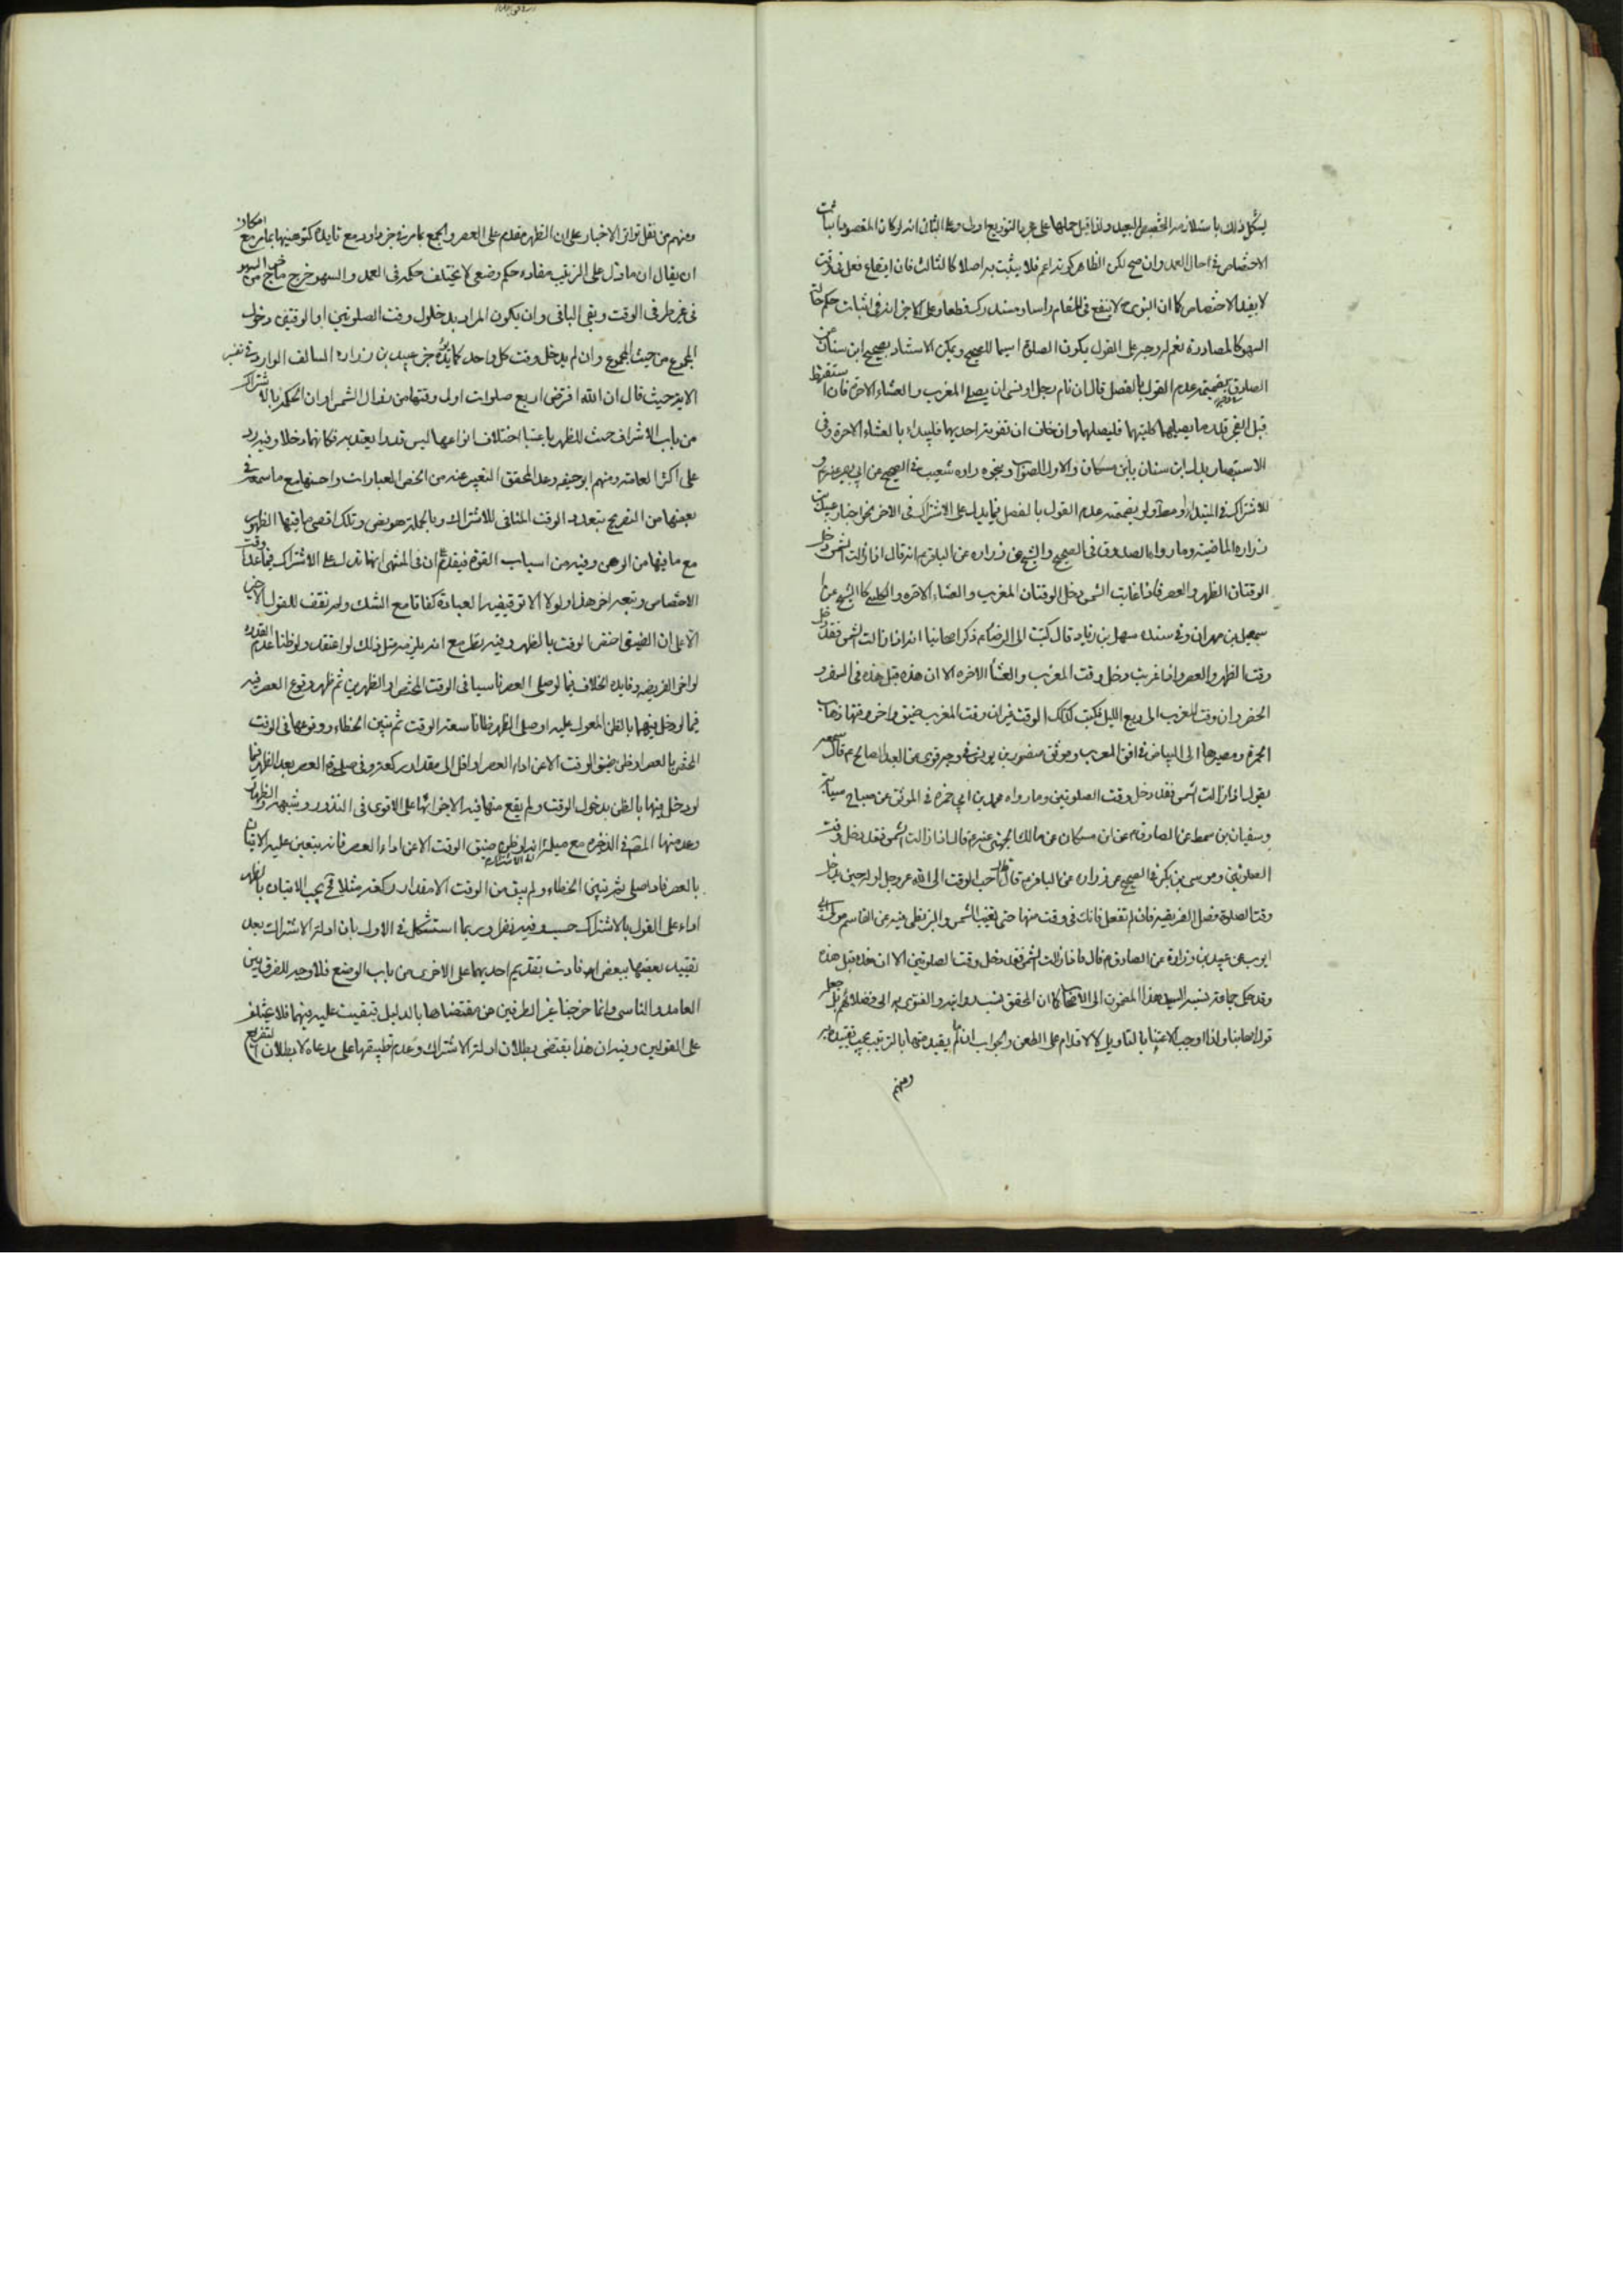 يشكل ذلك باستلزامه التخصيص البعيد ولذا قيل حملها على التوزيع اولى وعلى الثاني انه لو كان المقصود اثبات
الاختصاص في احال العمد وان صح لكن الظاهر كونه اعم فلا يثبت به اصلا كالثالث فان ايقاع فعل في وقت
لا يفيد الاختصاص كما ان النبوي لا ينفع في المقام راسا ومستدرك قطعا وعلى الاخر انه في اثبات حكم حالة
السهو كالمصادرة نعم له وجه على القول بكون الصلوة اسما للصحيح ويمكن الاستناد بصحيح ابن سنان عن
الصادق بضميمة عدم القول بالفصل قال ان نام رجل او نسي ان يصلي المغرب والعشاء الاخرة فان استيقظ
قبل الفجر قدر ما يصليهما كلتيهما فليصلهما وان خاف ان تفوته احديهما فليبداء بالعشاء الاخرة وفي
الاستبصار بدل ابن سنان بابن مسكان والاول الصواب ونحوه رواه شعيب في الصحيح عن ابي بصير عنه
للاشتراك في المبتدا ولو بضميمة عدم القول بالفصل فيما يدل على الاشتراك في الاخر نحو اخبار عبيد بن
زرارة الماضية وما رواه الصدوق في الصحيح والشيخ عن زرارة عن الباقر انه قال اذا زالت الشمس دخل
الوقتان الظهر والعصر فاذا غابت الشمس دخل الوقتان المغرب والعشاء الاخرة والكليني كالشيخ عن
اسمعيل بن مهران وفي سنده سهل بن زياد قال كتبت الى الرضا ذكر اصحابنا انه اذا زالت الشمس فقد دخل
وقت الظهر والعصر واذا غربت دخل وقت المغرب والعشا الاخره الا ان هذه قبل هذه في السفر و
الحضر وان وقت المغرب الى ربع الليل فكتب كذلك الوقت غير ان وقت المغرب ضيق واخر وقتها ذهاب
الحمرة ومصيرها الى البياض في افق المغرب وموثق منصور بن يونس في وجه قوي عن العبد الصالح قال سمعته
يقول اذا زالت الشمس فقد دخل وقت الصلوتين وما رواه محمد بن ابي حمزة في الموثق عن صباح سيابة
وسفيان بن سمط عن الصادق عن ابن مسكان عن مالك الجهني عنه قال اذا زالت الشمس فقد دخل وقت
الصلوتين وموسى بن بكر في الصحيح عن زرارة عن الباقر قال احب الوقت الى الله عز وجل اوله حين يدخل
وقت الصلوة فصل الفريضة فان لم تفعل فانك في وقت منها حتى تغيب الشمس والبزنطي عن القاسم مولى ابي
ايوب عن عبيد بن زرارة عن الصادق قال اذا زالت الشمس فقد دخل وقت الصلوتين الا ان هذه قبل هذه
وقد حكى جماعة نسبه السيد هذا المضمون الى اصحابنا كما ان المحقق ينسب روايته والفتوى به الى فضلائهم بل جعل
قول اصحابنا ولذا اوجب الاعتناء بالتاويل لا الاقدام على الطعن والجواب ان ما لم يقيد منها بالترتيب يجب تقييده به
ومنهم
ومنهم من نقل تواتر الاخبار على ان الظهر مقدم على العصر والجمع بما مر في خبر داود مع تايده كتوجيهها بما مر مع امكان
ان يقال ان ما دل على الترتيب مفاده حكم وضعي لا يختلف حكمه في العمد والسهو خرج ما خرج من السهو
في غير طرفي الوقت وبقي الباقي وان يكون المراد بدخول وقت الصلوتين او الوقتين دخول
المجموع من حيث المجموع وان لم يدخل وقت كل واحد كما يؤيده خبر عبيد بن زرارة السالف الوارد في تفسير
الاية حيث قال ان الله افترض اربع صلوات اول وقتها من زوال الشمس او ان الحكم بالاشتراك
من باب الاشراف حيث للظهر باعتبار اختلاف انواعها ليس قدرا يعتد به فكانهما دخلا وفيه رد
على اكثر العامة ومنهم ابو حنيفه وعد المحقق التعبير عنه من اخص العبارات واحسنها مع ما سمعته في
بعضها من التصريح بتعدد الوقت المنافي للاشتراك وبالجملة هو نص وتلك اقصى ما فيها الظهور
مع ما فيها من الوهن وفيه من اسباب القوة فيقدم ان في المنتهى انها تدل على الاشتراك فيما عدا وقت
الاختصاص وتبعه اخر هذا ولولا الا توقيفية العبادة كفانا مع الشك ولم نقف للقول الاخر
الا على ان الضيق اختص الوقت بالظهر وفيه نظر مع انه يلزمه مثل ذلك لو اعتقد ولو ظنا عدم القدرة
لو اخر الفريضه وفايدة الخلاف فيما لو صلى العصر ناسيا في الوقت المختص او الظهرين ثم ظهر وقوع العصر فيه
فيما لو دخل فيهما بالظن المعول عليه او صلى الظهر ظانا سعة الوقت ثم تبين الخطاء ووقوعها في الوقت
المختص بالعصر او ظن ضيق الوقت الا عن اداء العصر او اقل الى مقدار ركعة وفي صلوة العصر بعد الظهر فيما
لو دخل فيها بالظن بدخول الوقت ولم يقع منها فيه الاجزائها على الاقوى في النذور وشبهه والظهار
وعد منها المص في الذخيرة مع ميله الى الاشتراك انه لو ظن ضيق الوقت الا عن اداء العصر فانه يتعين عليه الاتيان
بالعصر فاذا صلى ثم تبين الخطاء ولم يبق من الوقت الا مقدار ركعة مثلا فح يجب الاتيان بالظهر
اداء على القول بالاشتراك حسب وفيه نظر وربما استشكل في الاول بان ادلة الاشتراك بعد
تقييد بعضها ببعض افادت بتقديم احديهما على الاخرى من باب الوضع فلا وجه للفرق بين
العامد والناسي وانما خرجنا غير الطرفين عن مقتضاها بالدليل فبقيت عليه فيهما فلا يختلف
على القولين وفيه ان هذا يقتضي بطلان ادلة الاشتراك وعدم تطبيقها على مدعاه لا بطلان التفريع